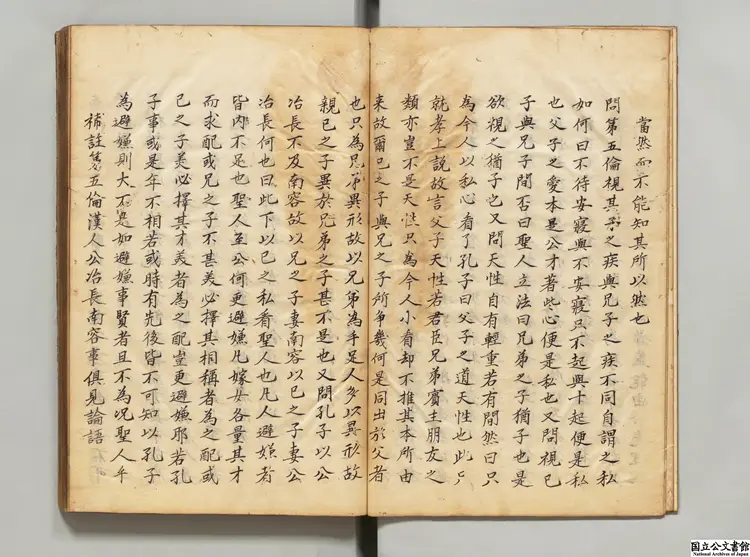 當然而不能知其所以然也
問第五倫視其子之疾與兄子之疾不同自謂之私
如何曰不待安寢與不安寢只不起與十起便是私
也父子之愛本是公才著些心便是私也又問視已
子與兄子間否曰聖人立法曰兄弟之子猶子也是
欲視之猶子也又問天性自有輕重若有間然曰只
為今人以私心看了孔子曰父子之道天性也此只
就孝上說故言父子天性若君臣兄弟賓主朋友之
類亦豈不是天性只為今人小看却不推其本所由
来故爾已之子與兄之子所争幾何是同出於父者
也只為兄弟異形故以兄弟為手足人多以異形故
親已之子異於兄弟之子甚不是也又問孔子以公
冶長不及南容故以兄之子妻南容以已之子妻公
冶長何也曰此下以已之私看聖人也凡人避嫌者
皆內不足也聖人至公何更避嫌凡嫁女各量其才
而求配或兄之子不甚美必擇其相稱者為之配或
已之子美必擇其才美者為之配豈更避嫌耶若孔
子事或是年不相若或時有先後皆不可知以孔子
為避嫌則大不是如避嫌事賢者且不為况聖人乎
補註第五倫漢人公冶長南容事俱見論語
国立公文書館
National Archives of Japan